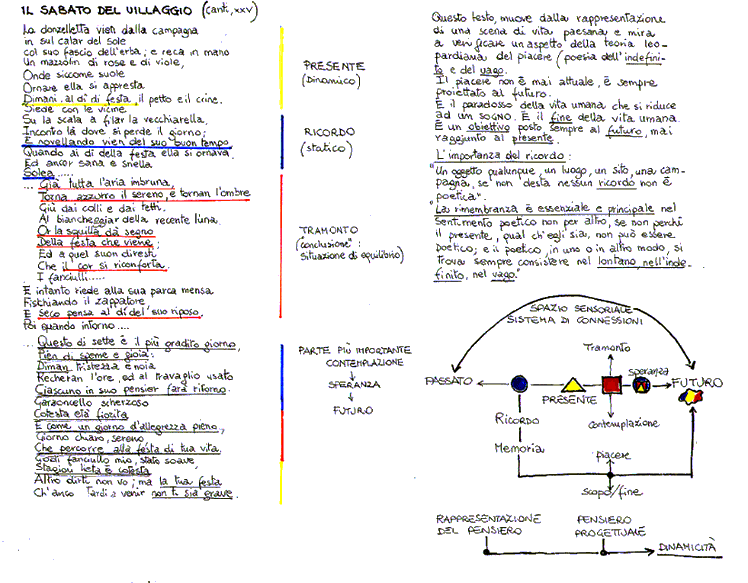 IL SABATO DEL VILLAGGIO (canti, XXV)
La donzelletta vien dalla campagna
in sul calar del sole
col suo fascio dell'erba; e reca in mano
Un mazzolin di rose e di viole,
Onde siccome suole
Ornare ella si appresta
Dimani, al dì di festa, il petto e il crine.
Siede con le vicine
Su la scala a filar la vecchiarella,
Incontro là dove si perde il giorno;
E novellando vien del suo buon tempo,
Quando ai dì della festa ella si ornava,
Ed ancor sana e snella
Solea.....
... Già tutta l'aria imbruna,
Torna azzurro il sereno, e tornan l'ombre
Giù dai colli e dai tetti,
Al biancheggiar della recente luna.
Or la squilla dà segno
Della festa che viene;
Ed a quel suon diresti
Che il cor si riconforta.
I fanciulli.....
E intanto riede alla sua parca mensa
Fischiando il zappatore
E seco pensa al dì del suo riposo.
Poi quando intorno....
... Questo di sette è il più gradito giorno,
Pien di speme e gioia:
Diman tristezza e noia
Recheran l'ore, ed al travaglio usato
Ciascuno in suo pensier farà ritorno.
Garzoncello scherzoso
Cotesta età fiorita
È come un giorno d'allegrezza pieno,
Giorno chiaro, sereno,
Che percorre alla festa di tua vita.
Godi fanciullo mio, stato soave,
Stagion lieta è cotesta
Altro dirti non vo; ma la tua festa
Ch'anco tardi a venir non ti sia grave.
PRESENTE
(Dinamico)
RICORDO
(statico)
TRAMONTO
("conclusione":
Situazione di equilibrio)
PARTE PIÙ IMPORTANTE
CONTEMPLAZIONE
SPERANZA
FUTURO
Questo testo, muove dalla rappresentazione
di una scena di vita paesana e mira
a verificare un aspetto della teoria leo-
pardiana del piacere (poesia dell'indefini-
to e del vago.
Il piacere non è mai attuale, è sempre
proiettato al futuro.
È il paradosso della vita umana che si riduce
ad un sogno. È il fine della vita umana.
È un obiettivo posto sempre al futuro, mai
raggiunto al presente.
L'importanza del ricordo:
"Un oggetto qualunque, un luogo, un sito, una cam-
pagna, se non desta nessun ricordo non è
poetica".
"La rimembranza è essenziale e principale nel
sentimento poetico non per altro, se non perché
il presente, qual ch'egli sia, non può essere
poetico; e il poetico, in uno o in altro modo, si
trova sempre consistere nel lontano, nell'inde-
finito, nel vago."
SPAZIO SENSORIALE
SISTEMA DI CONNESSIONI
Tramonto
speranza
PASSATO
PRESENTE
FUTURO
Ricordo
contemplazione
Memoria
piacere
scopo/fine
RAPPRESENTAZIONE
DEL PENSIERO
PENSIERO
PROGETTUALE
DINAMICITÀ